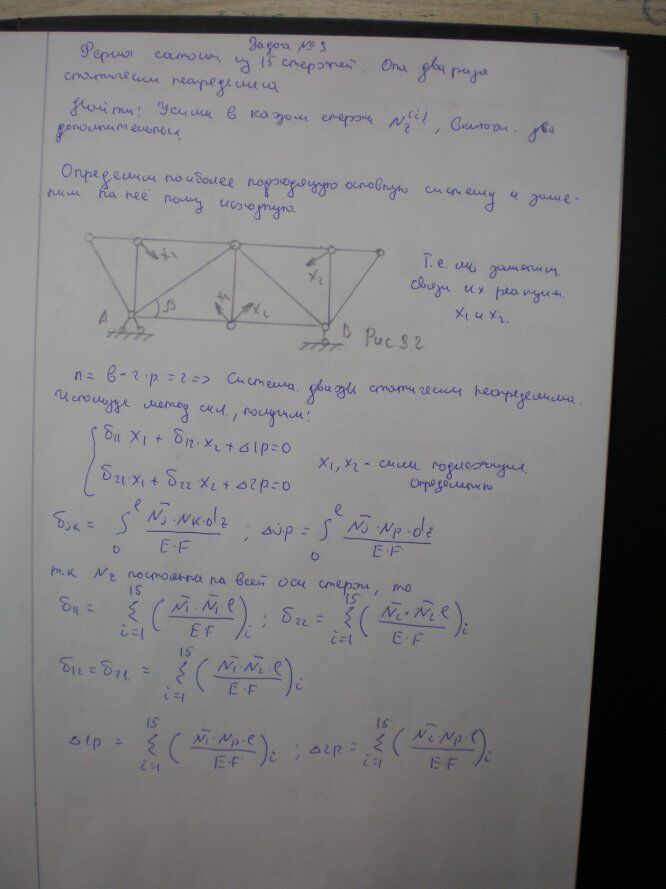 Задача №3
Ферма состоит из 15 стержней. Она два раза
статически неопределима
Найти: Усилия в каждом стержне N_z^(i), включ. два
дополнительных.
Определим наиболее подходящую основную систему и заме-
ним на неё нашу исходную.
x₁
x₂
x₁
x₂
A
β
B
Рис 3.2
Т.е мы заменим
связи их реакциями
x₁ и x₂.
система дважды статически неопределима.
Используя метод сил, получим:
δ₁₁·x₁ + δ₁₂·x₂ + Δ1p=0
δ₂₁·x₁ + δ₂₂·x₂ + Δ2p=0
x₁, x₂ - силы подлежащие
определению
δjk = ∫₀^l N̄j·N̄k·dz / E·F ; Δjp = ∫₀^l N̄j·Np·dz / E·F
т.к Nz постоянна на всей оси стержня, то
δ₁₁ = Σ_{i=1}^{15} (N̄₁·N̄₁·l / E·F)i ; δ₂₂ = Σ_{i=1}^{15} (N̄₂·N̄₂·l / E·F)i
δ₁₂=δ₂₁ = Σ_{i=1}^{15} (N̄₁·N̄₂·l / E·F)i
Δ1p = Σ_{i=1}^{15} (N̄₁·Np·l / E·F)i ; Δ2p = Σ_{i=1}^{15} (N̄₂·Np·l / E·F)i